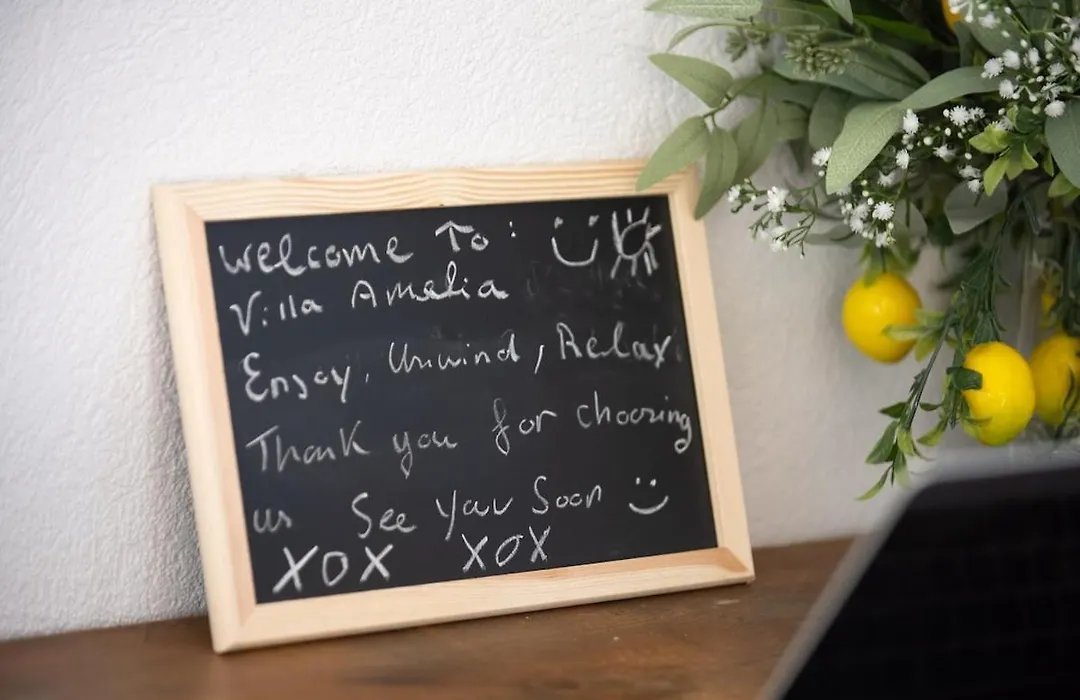 Welcome To:
Villa Amelia
Enjoy, Unwind, Relax
Thank you for choosing
us See You Soon
XOX XOX